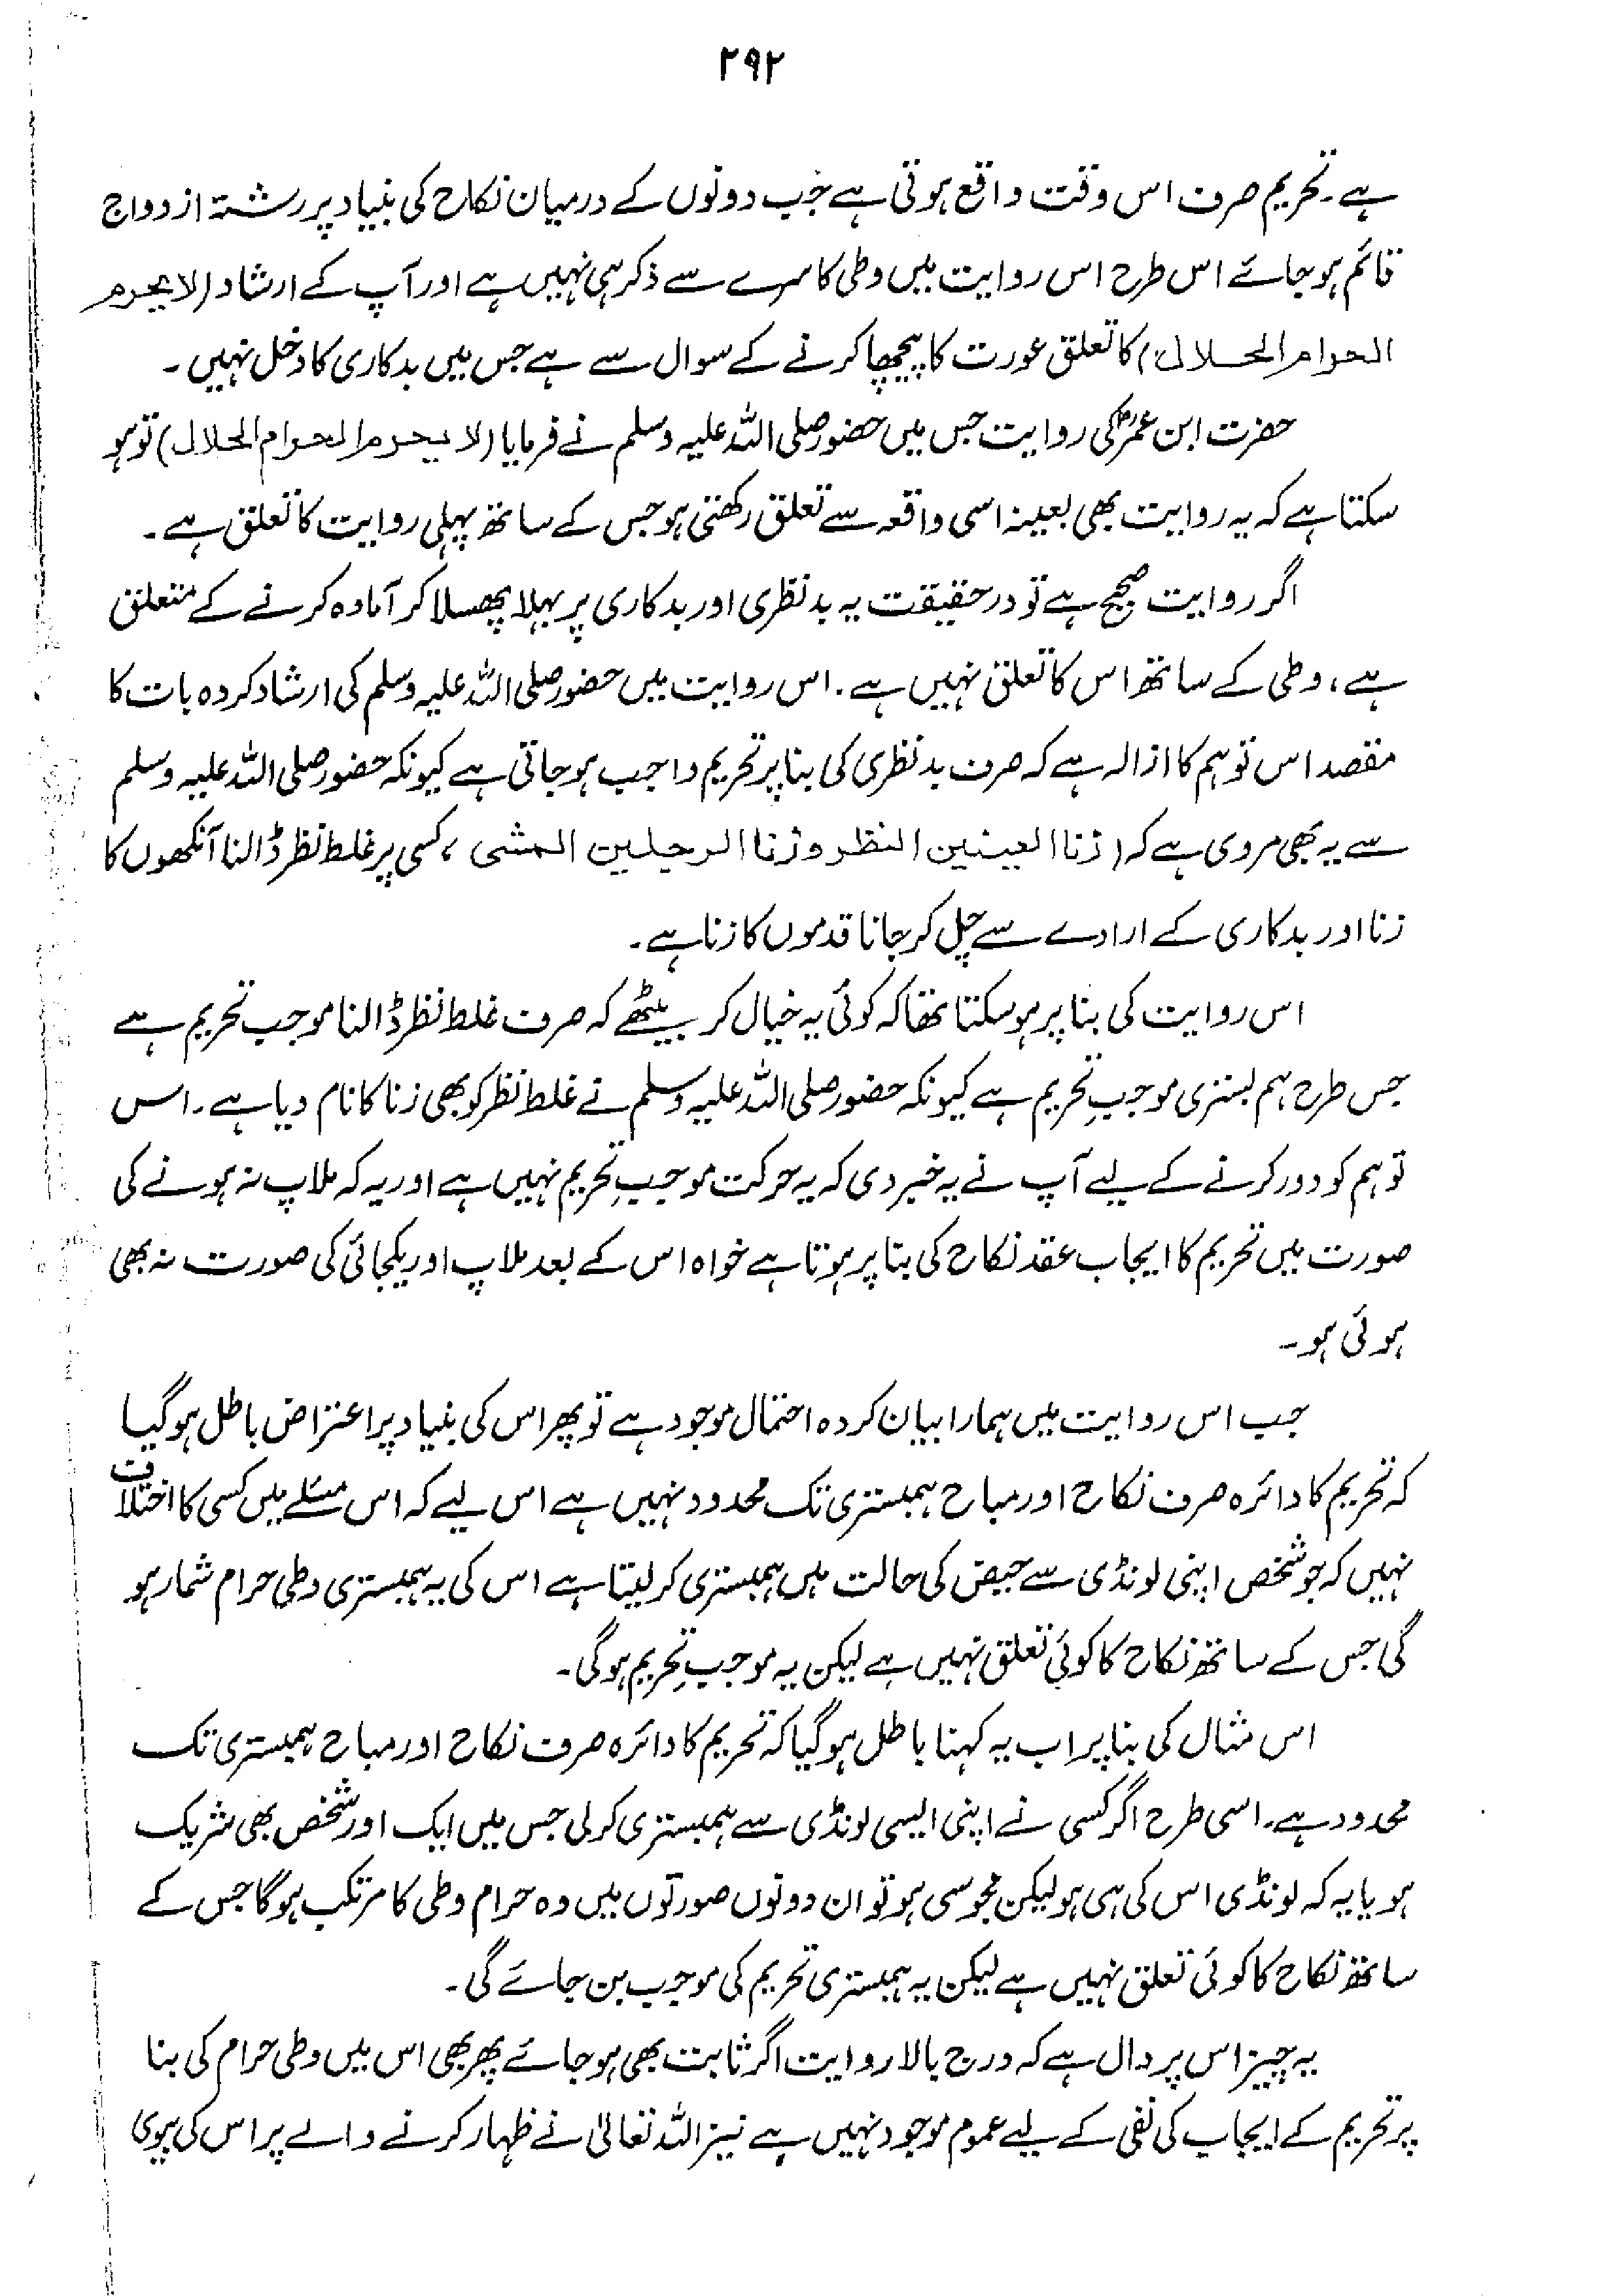 ۲۹۲
ہے۔ تحریم صرف اس وقت واقع ہوتی ہے جب دونوں کے درمیان نکاح کی بنیاد پر رشتۂ ازدواج
قائم ہو جائے اس طرح اس روایت میں وطی کا سرے سے ذکر ہی نہیں ہے اور آپ کے ارشاد (لا یحرم
الحرام الحلال) کا تعلق عورت کا پیچھا کرنے کے سوال سے ہے جس میں بدکاری کا دخل نہیں۔
حضرت ابن عمرؓ کی روایت جس میں حضور صلی اللہ علیہ وسلم نے فرمایا (لا یحرم الحرام الحلال) تو ہو
سکتا ہے کہ یہ روایت بھی بعینہ اسی واقعہ سے تعلق رکھتی ہو جس کے ساتھ پہلی روایت کا تعلق ہے۔
اگر روایت صحیح ہے تو درحقیقت یہ بدنظری اور بدکاری پر بہلا پھسلا کر آمادہ کرنے کے متعلق
ہے، وطی کے ساتھ اس کا تعلق نہیں ہے۔ اس روایت میں حضور صلی اللہ علیہ وسلم کی ارشاد کردہ بات کا
مقصد اس توہم کا ازالہ ہے کہ صرف بدنظری کی بنا پر تحریم واجب ہو جاتی ہے کیونکہ حضور صلی اللہ علیہ وسلم
سے یہ بھی مروی ہے کہ (زنا العینین النظر وزنا الرجلین المشی، کسی پر غلط نظر ڈالنا آنکھوں کا
زنا اور بدکاری کے ارادے سے چل کر جانا قدموں کا زنا ہے۔
اس روایت کی بنا پر ہو سکتا تھا کہ کوئی یہ خیال کر بیٹھے کہ صرف غلط نظر ڈالنا موجب تحریم ہے
جس طرح ہم بستری موجبِ تحریم ہے کیونکہ حضور صلی اللہ علیہ وسلم نے غلط نظر کو بھی زنا کا نام دیا ہے۔ اس
توہم کو دور کرنے کے لیے آپ نے یہ خبر دی کہ یہ حرکت موجبِ تحریم نہیں ہے اور یہ کہ ملاپ نہ ہونے کی
صورت میں تحریم کا ایجاب عقد نکاح کی بنا پر ہوتا ہے خواہ اس کے بعد ملاپ اور یکجائی کی صورت نہ بھی
ہوئی ہو۔
جب اس روایت میں ہمارا بیان کردہ احتمال موجود ہے تو پھر اس کی بنیاد پر اعتراض باطل ہو گیا
کہ تحریم کا دائرہ صرف نکاح اور مباح ہمبستری تک محدود نہیں ہے اس لیے کہ اس مسئلے میں کسی کا اختلاف
نہیں کہ جو شخص اپنی لونڈی سے حیض کی حالت میں ہمبستری کر لیتا ہے اس کی یہ ہمبستری وطی حرام شمار ہو
گی جس کے ساتھ نکاح کا کوئی تعلق نہیں ہے لیکن یہ موجبِ تحریم ہوگی۔
اس مثال کی بنا پر اب یہ کہنا باطل ہو گیا کہ تحریم کا دائرہ صرف نکاح اور مباح ہمبستری تک
محدود ہے۔ اسی طرح اگر کسی نے اپنی ایسی لونڈی سے ہمبستری کر لی جس میں ایک اور شخص بھی شریک
ہو یا یہ کہ لونڈی اس کی ہی ہو لیکن مجوسی ہو تو ان دونوں صورتوں میں وہ حرام وطی کا مرتکب ہوگا جس کے
ساتھ نکاح کا کوئی تعلق نہیں ہے لیکن یہ ہمبستری تحریم کی موجب بن جائے گی۔
یہ چیز اس پر دال ہے کہ درج بالا روایت اگر ثابت بھی ہو جائے پھر بھی اس میں وطی حرام کی بنا
پر تحریم کے ایجاب کی نفی کے لیے عموم موجود نہیں ہے نیز اللہ تعالیٰ نے ظہار کرنے والے پر اس کی بیوی